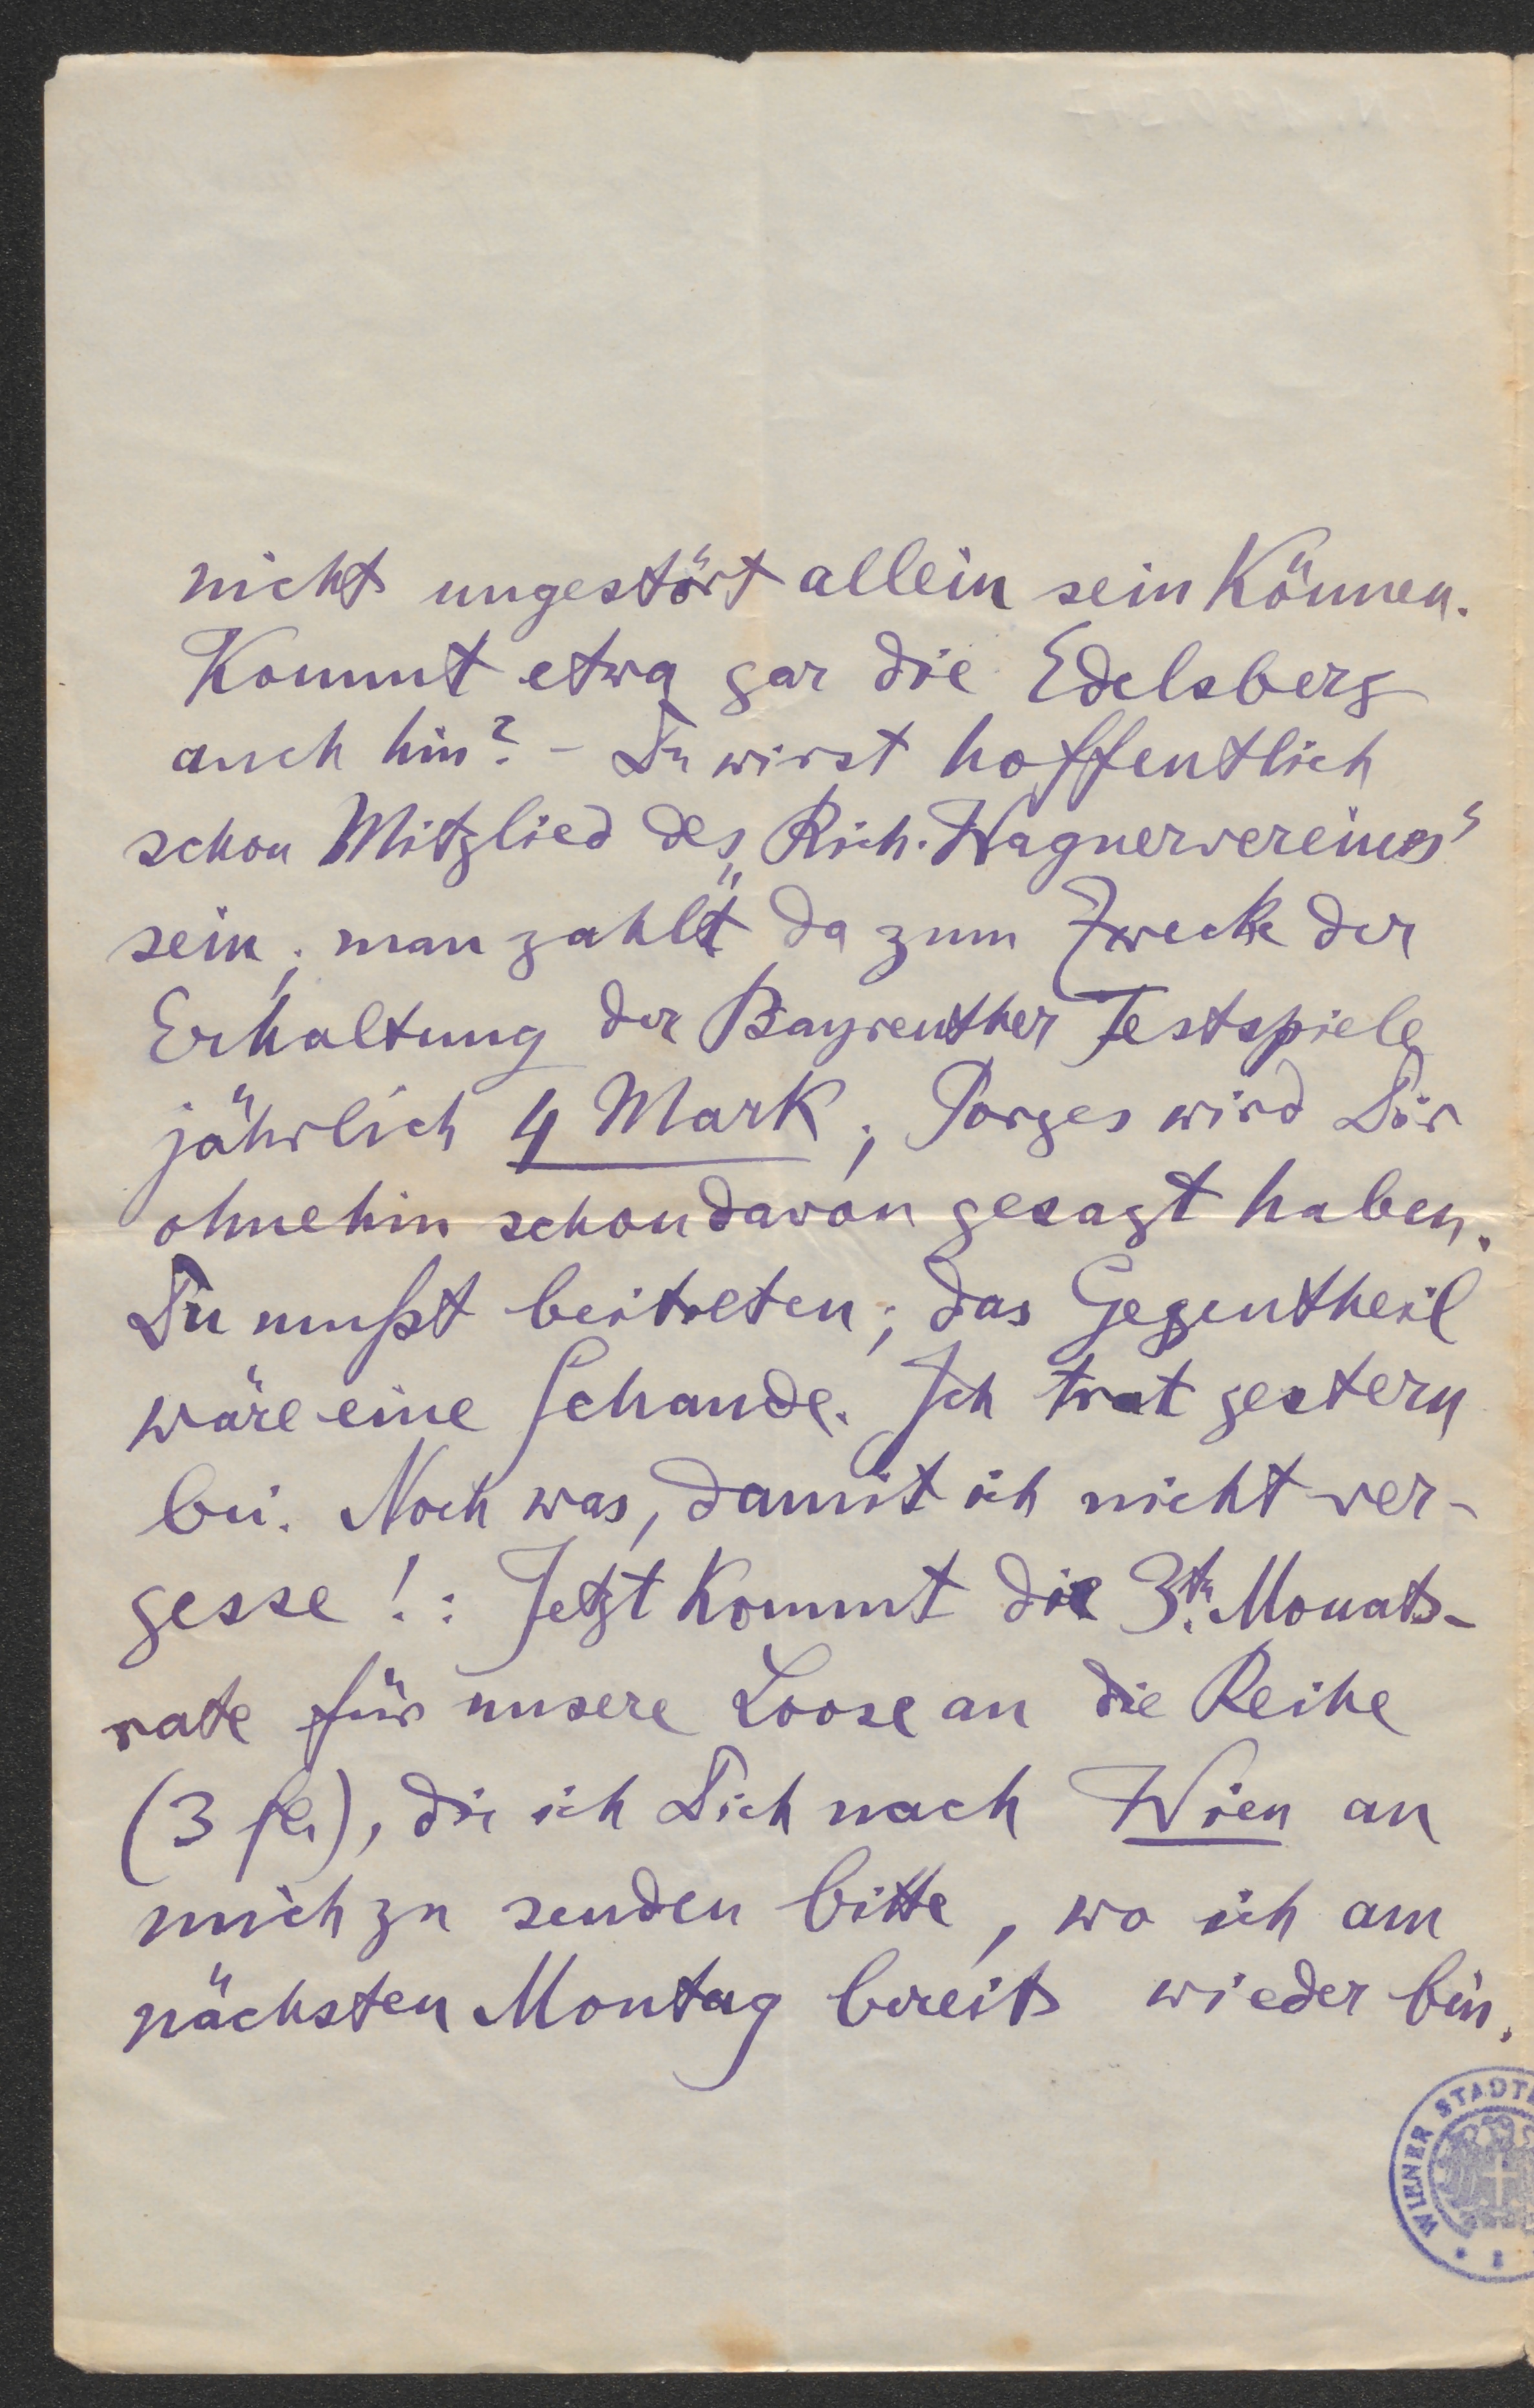 nicht ungestört allein sein können.
Kommt etwa gar die Edelsberg
auch hin? – Du wirst hoffentlich
schon Mitglied des „Rich. Wagnervereines“
sein; man zahlt da zum Zwecke der
Erhaltung der Bayreuther Festspiele
jährlich 4 Mark; Porges wird Dir
ohnehin schon davon gesagt haben.
Du mußt beitreten; das Gegentheil
wäre eine Schande. Ich trat gestern
bei. Noch was, damit ich nicht ver-
gesse!: Jetzt kommt die 3te. Monats-
rate für unsere Loose an die Reihe
(3 fl.), die ich Dich nach Wien an
mich zu senden bitte, wo ich am
nächsten Montag bereits wieder bin.
WIENER STADT